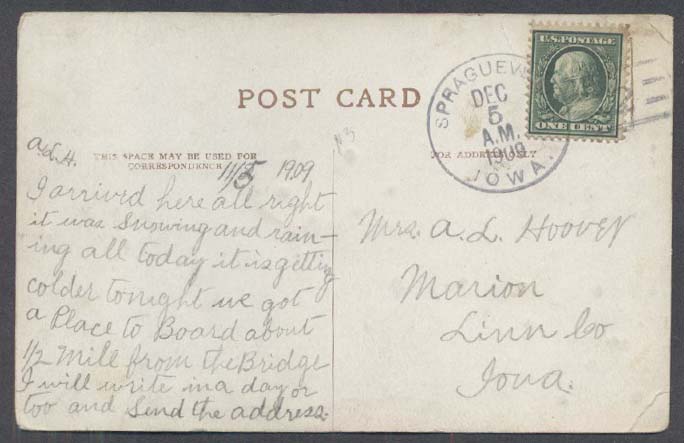 POST CARD
THIS SPACE MAY BE USED FOR
CORRESPONDENCE
FOR ADDRESS ONLY
U.S. POSTAGE
ONE CENT
SPRAGUEV
DEC
5
A.M.
1909
IOWA.
11/5 1909
I arrived here all right
it was Snowing and rain-
ing all today it is getting
colder tonight we got
a Place to Board about
1/2 Mile from the Bridge
I will write in a day or
too and Send the address.
Mrs. A. L. Hoover
Marion
Linn Co
Iowa.